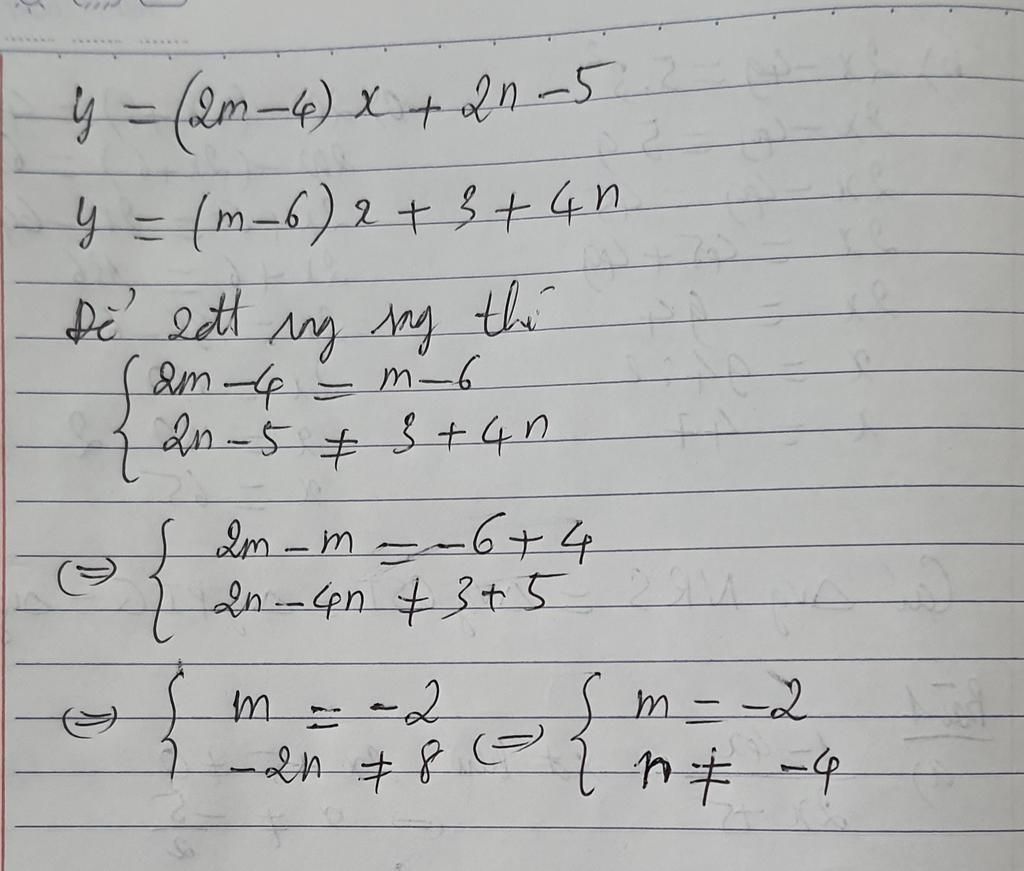 y = (2m - 4) x + 2n - 5
y = (m - 6) x + 3 + 4n
Để 2đt sg sg thì
{ 2m - 4 = m - 6
2n - 5 ≠ 3 + 4n
⇔ { 2m - m = -6 + 4
2n - 4n ≠ 3 + 5
⇔ { m = -2 ⇔ { m = -2
-2n ≠ 8 n ≠ -4